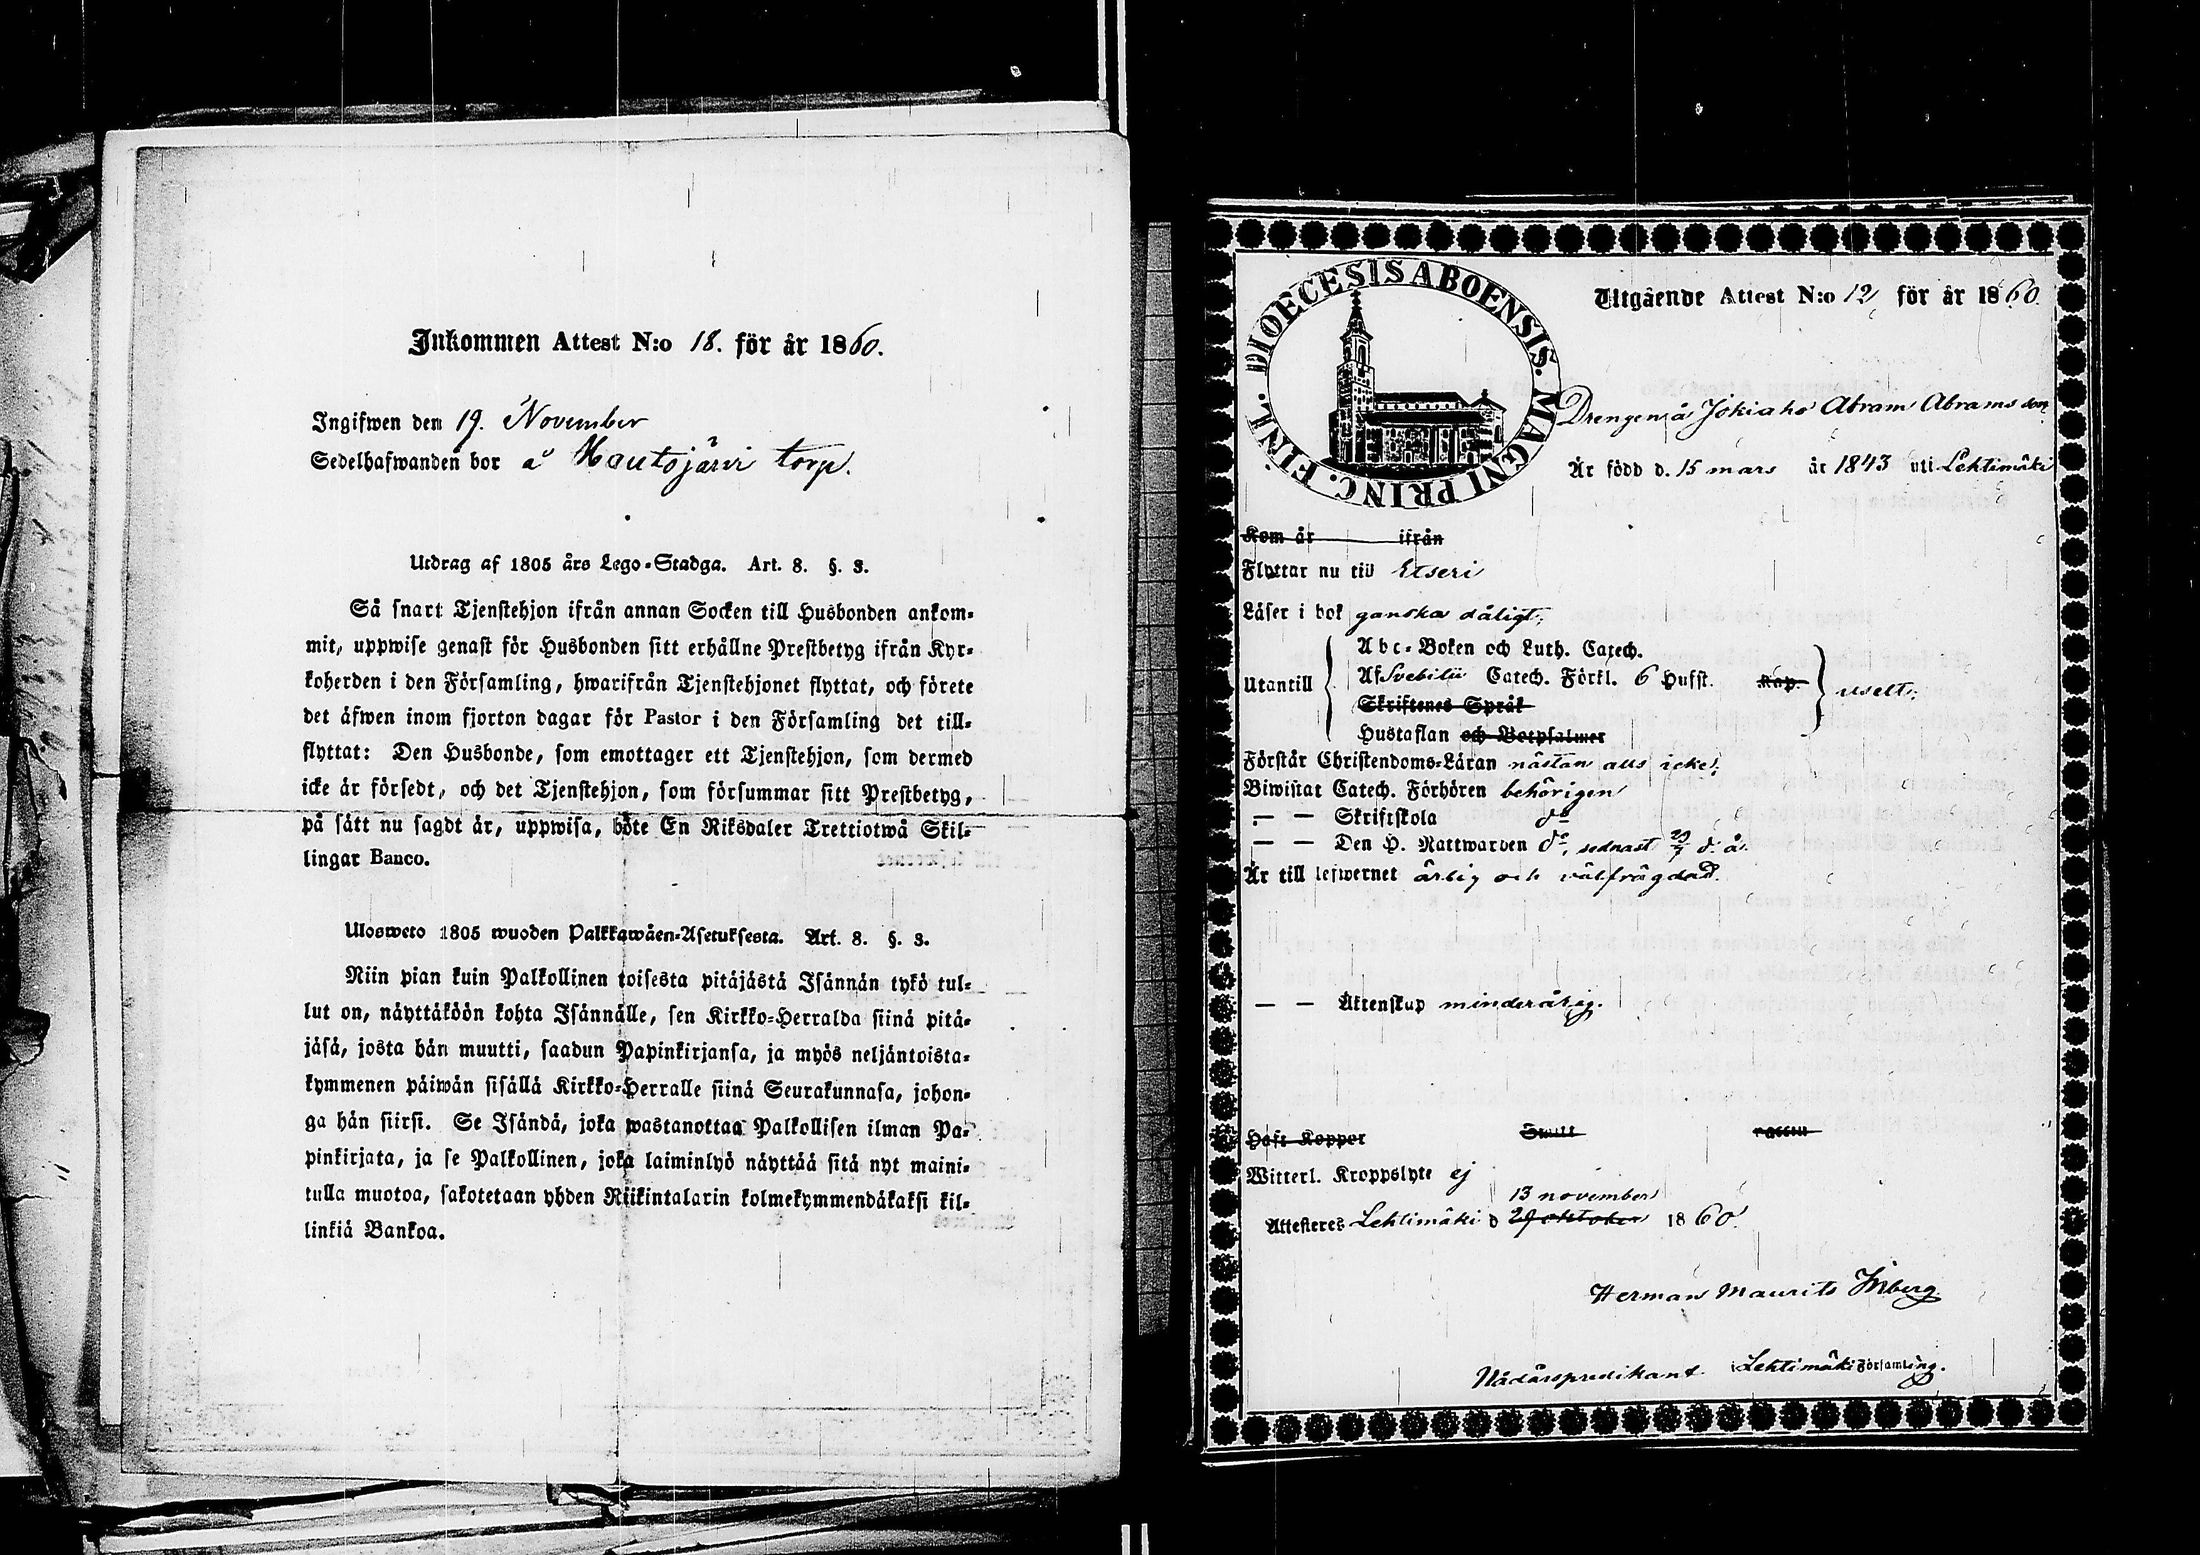 Inkommen Attest N:o 18. för år 1860.
Ingifwen den 19. November
Sedelhafwanden bor å Hautojärvi torp.
Utdrag af 1805 års Lego-Stadga. Art. 8. §. 3.
Så snart Tjenstehjon ifrån annan Socken till Husbonden ankom-
mit, uppwise genast för Husbonden sitt erhållne Prestbetyg ifrån Kyr-
koherden i den Församling, hwarifrån Tjenstehjonet flyttat, och förete
det äfwen inom fjorton dagar för Pastor i den Församling det till-
flyttat: Den Husbonde, som emottager ett Tjenstehjon, som dermed
icke är försedt, och det Tjenstehjon, som försummar sitt Prestbetyg,
på sätt nu sagdt är, uppwisa, böte En Riksdaler Trettiotwå Skil-
lingar Banco.
Ulosweto 1805 wuoden Palkkawäen-Asetuksesta. Art. 8. §. 3.
Niin pian kuin Palkollinen toisesta pitäjästä Isännän tykö tul-
lut on, näyttäköön kohta Isännälle, sen Kirkko-Herralda siinä pitä-
jäsä, josta hän muutti, saadun Papinkirjansa, ja myös neljäntoista-
kymmenen päiwän sisällä Kirkko-Herralle siinä Seurakunnasa, johon-
ga hän siirsi. Se Isändä, joka wastanottaa Palkollisen ilman Pa-
pinkirjata, ja se Palkollinen, joka laiminlyö näyttää sitä nyt maini-
tulla muotoa, sakotetaan yhden Riikintalarin kolmekymmendäkaksi kil-
linkiä Bankoa.
DIOECESIS ABOENSIS. MAGNI PRINC. FINL.
Utgående Attest N:o 12 för år 1860
Drengen å Jokiaho Abram Abramsson
Är född d. 15 mars år 1843 uti Lehtimäki
Kom år ifrån
Flyttar nu till Etseri
Läser i bok ganska dåligt;
Abc-Boken och Luth. Catech.
Utantill Af Svebilii Catech. Förkl. 6 Hufst. Kap. uselt;
Skriftenes Språk
Hustaflan och Botpsalmer
Förstår Christendoms-Läran nästan alls icke;
Biwistat Catech. Förhören behörigen
— — Skriftskola do
— — Den H. Nattwarden do, sednast d. å.
Är till lefwernet ärlig och välfrägdad.
— — Äktenskap minderårig.
Haft Koppor
Witterl. Kroppslyte ej
13 november
Attesteres Lehtimäki d 29 oktober 1860.
Herman Maurits
Nådårspredikant i Lehtimäki Församling.